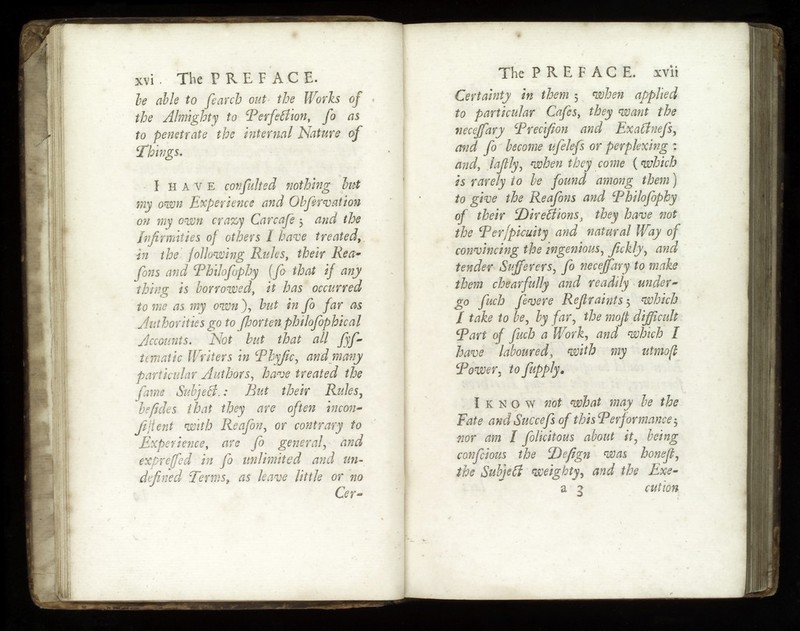 xvi. The PREFACE.
be able to ſearch out the Works of
the Almighty to Perfection, ſo as
to penetrate the internal Nature of
Things.
I HAVE conſulted nothing but
my own Experience and Obſervation
on my own crazy Carcaſe; and the
Infirmities of others I have treated,
in the following Rules, their Rea-
ſons and Philoſophy (ſo that if any
thing is borrowed, it has occurred
to me as my own), but in ſo far as
Authorities go to ſhorten philoſophical
Accounts. Not but that all ſyſ-
tematic Writers in Phyſic, and many
particular Authors, have treated the
ſame Subject: But their Rules,
beſides that they are often incon-
ſiſtent with Reaſon, or contrary to
Experience, are ſo general, and
expreſſed in ſo unlimited and un-
defined Terms, as leave little or no
Cer-
The PREFACE. xvii
Certainty in them; when applied
to particular Caſes, they want the
neceſſary Preciſion and Exactneſs,
and ſo become uſeleſs or perplexing:
and, laſtly, when they come (which
is rarely to be found among them)
to give the Reaſons and Philoſophy
of their Directions, they have not
the Perſpicuity and natural Way of
convincing the ingenious, ſickly, and
tender Sufferers, ſo neceſſary to make
them chearfully and readily under-
go ſuch ſevere Reſtraints; which
I take to be, by far, the moſt difficult
Part of ſuch a Work, and which I
have laboured, with my utmoſt
Power, to ſupply.
I KNOW not what may be the
Fate and Succeſs of this Performance;
nor am I ſolicitous about it, being
conſcious the Deſign was honeſt,
the Subject weighty, and the Exe-
a 3 cution